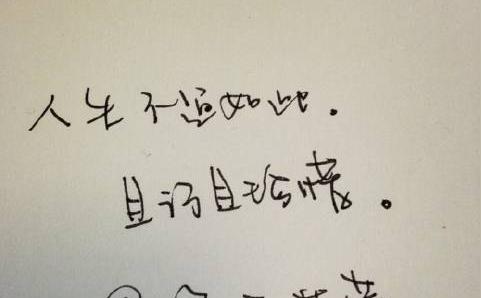 人生不过如此.
且行且珍惜。